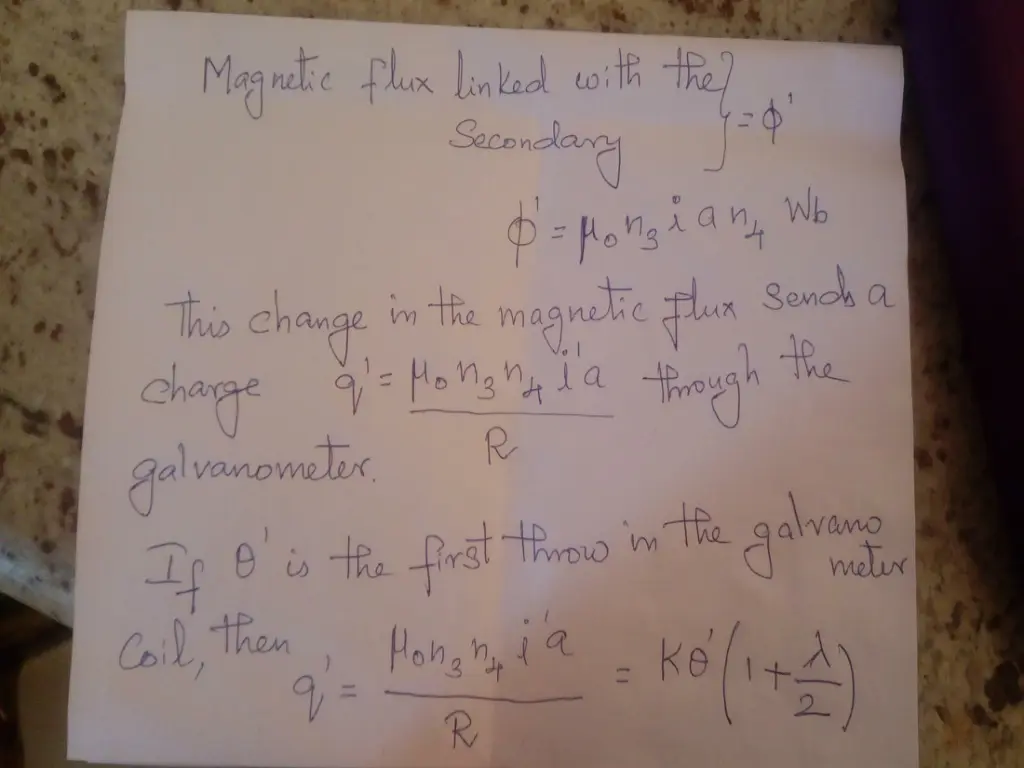 Magnetic flux linked with the
Secondary } = ϕ'
ϕ' = μ₀ n₃ i a n₄ Wb
This change in the magnetic flux sends a
charge q' = μ₀ n₃ n₄ i' a / R through the
galvanometer.
If θ' is the first throw in the galvano
meter
Coil, then
q' = μ₀ n₃ n₄ i' a / R = Kθ' (1 + λ/2)